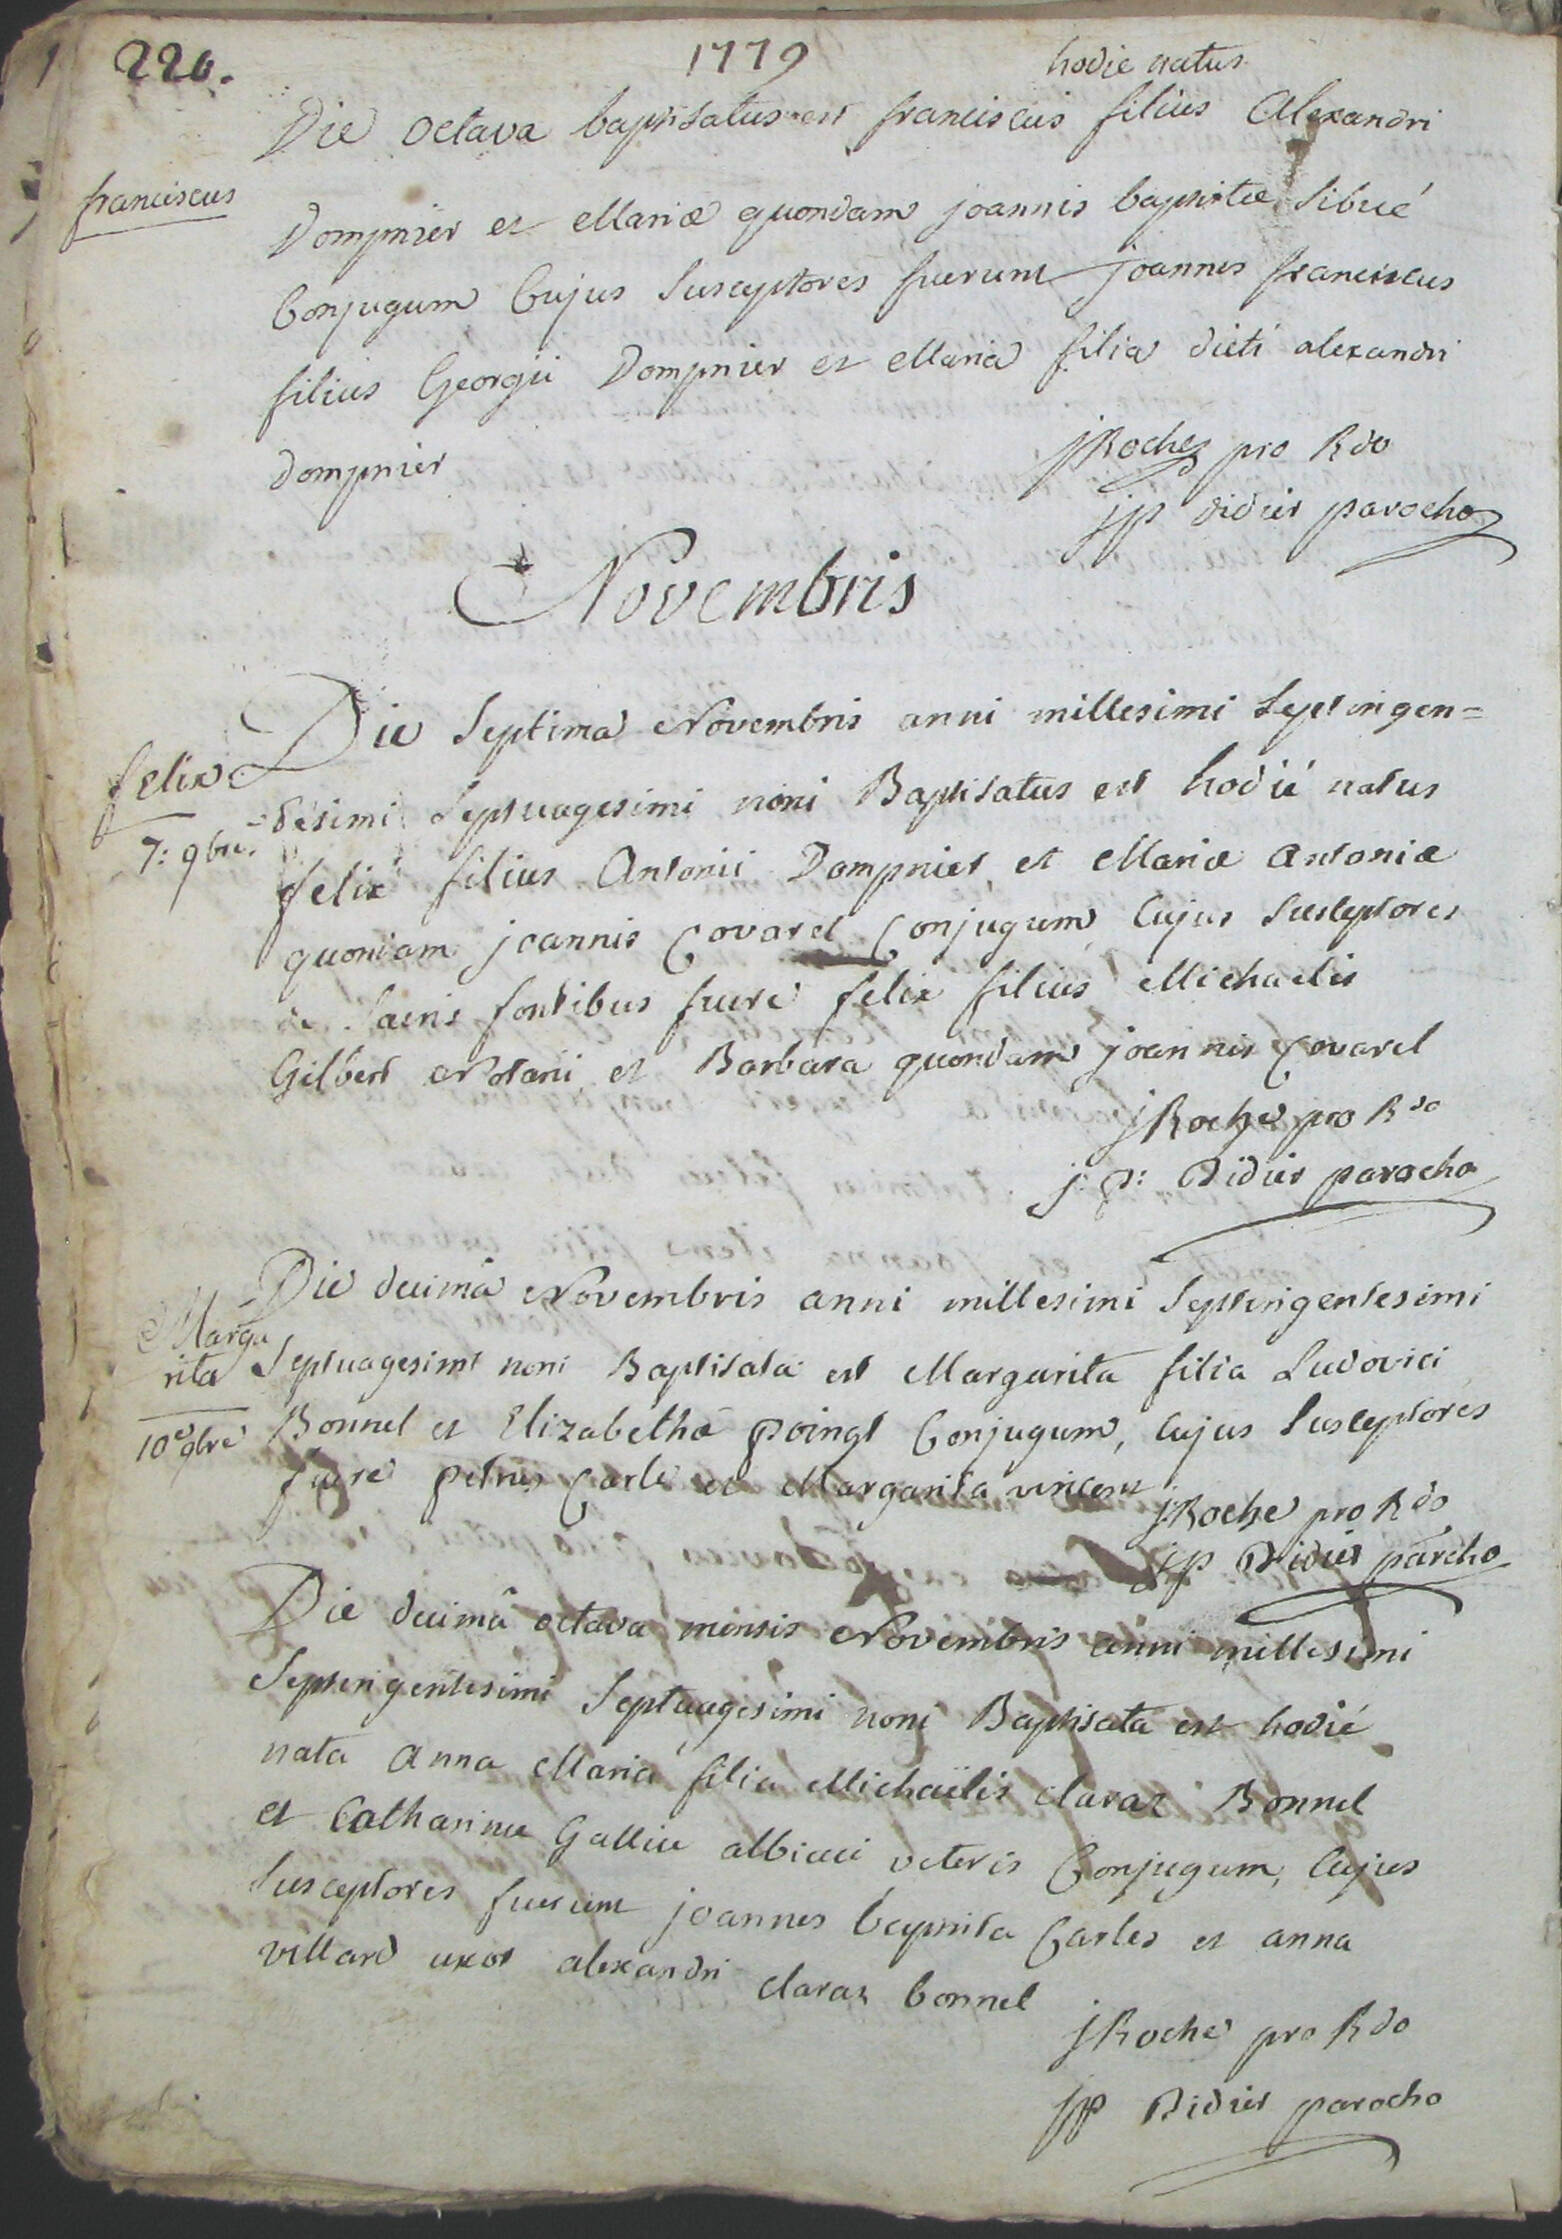 220.
1779
hodie natus
Die octava baptisatus est franciscus filius Alexandri
franciscus
Dompnier et Mariæ quondam joannis baptistæ Sibué
Conjugum Cujus Susceptores fuerunt joannes franciscus
filius Georgii Dompnier et Maria filia dicti alexandri
dompnier
jRoche pro Rdo
jp didier parocho
Novembris
Die Septima Novembris anni millesimi Septingen=
felix
=tesimi Septuagesimi noni Baptisatus est hodié natus
7: 9bris
felix filius Antonii Dompnier et Mariæ Antoniæ
quondam joannis Covarel Conjugum Cujus Susceptores
de Sacris fontibus fuere felix filius Michaelis
Gilbert Notarii et Barbara quondam joannis Covarel
jRoche pro Rdo
j: p: Didier parocho
Die decimâ Novembris anni millesimi Septingentesimi
Marga
rita
Septuagesimi noni Baptisata est Margarita filia Ludovici
10e 9bre
Bonnel et Elizabethæ poingt Conjugum, Cujus Susceptores
fuere petrus Carle et Margarita vincent
jRoche pro Rdo
jp Didier parcho
Die decimâ octava mensis Novembris anni millesimi
Septingentesimi Septuagesimi noni Baptisata est hodié
nata Anna Maria filia Michaëlis claraz Bonnel
et Catharinæ Gallice albicici veteris Conjugum, Cujus
Susceptores fuerunt joannes baptista Carles et anna
villard uxor alexandri claraz bonnel
jRoche pro Rdo
jp Didier parocho